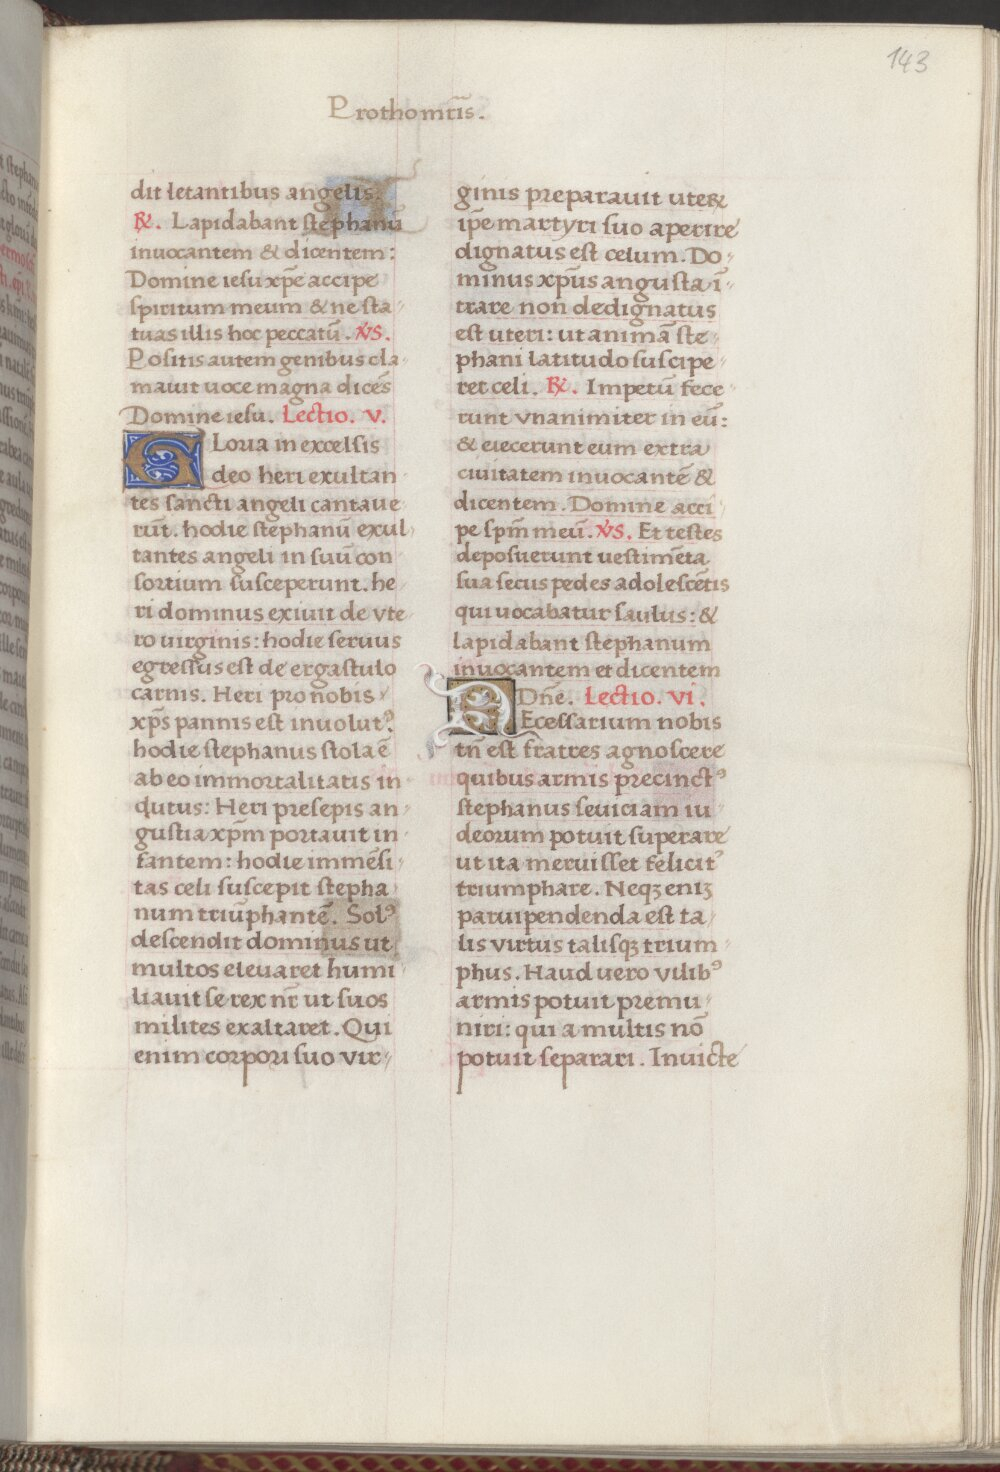 143
Prothomr̄is.
dit letantibus angelis.
℞. Lapidabant stephanū
inuocantem & dicentem:
Domine iesu xp̄e accipe
spiritum meum & ne sta
tuas illis hoc peccatū. v̇s.
Positis autem genibus cla
mauit uoce magna dicēs
Domine iesu. Lectio. v.
Gloria in excelsis
deo heri exultan
tes sancti angeli cantaue
rūt. hodie stephanū exul
tantes angeli in suū con
sortium susceperunt. he
ri dominus exiuit de vte
ro uirginis: hodie seruus
egressus est de ergastulo
carnis. Heri pro nobis
xp̄s pannis est inuolutꝰ
hodie stephanus stola ē
ab eo immortalitatis in
dutus: Heri presepis an
gustia xp̄m portauit in
fantem: hodie immēsi
tas celi suscepit stepha
num triūphantē. Solꝰ
descendit dominus ut
multos eleuaret humi
liauit se rex nr̄ ut suos
milites exaltaret. Qui
enim corpori suo vir
ginis preparauit uteꝝ
ip̄e martyri suo aperire
dignatus est celum. Do
minus xp̄us angusta ī
trare non dedignatus
est uteri: ut animā ste
phani latitudo suscipe
ret celi. ℞. Impetū fece
runt vnanimiter in eū:
& eiecerunt eum extra
ciuitatem inuocantē &
dicentem. Domine acci
pe sp̄m meū. v̇s. Et testes
deposuerunt uestimēta
sua secus pedes adolescētis
qui uocabatur saulus: &
lapidabant stephanum
inuocantem et dicentem
Dn̄e. Lectio. vi.
Necessarium nobis
tn̄ est fratres agnoscere
quibus armis precinctꝰ
stephanus seuiciam iu
deorum potuit superare
ut ita meruisset felicitꝰ
triumphare. Neqꝫ eniꝫ
paruipendenda est ta
lis virtus talisqꝫ trium
phus. Haud uero vilibꝰ
armis potuit premu
niri: qui a multis nō
potuit separari. Inuicte